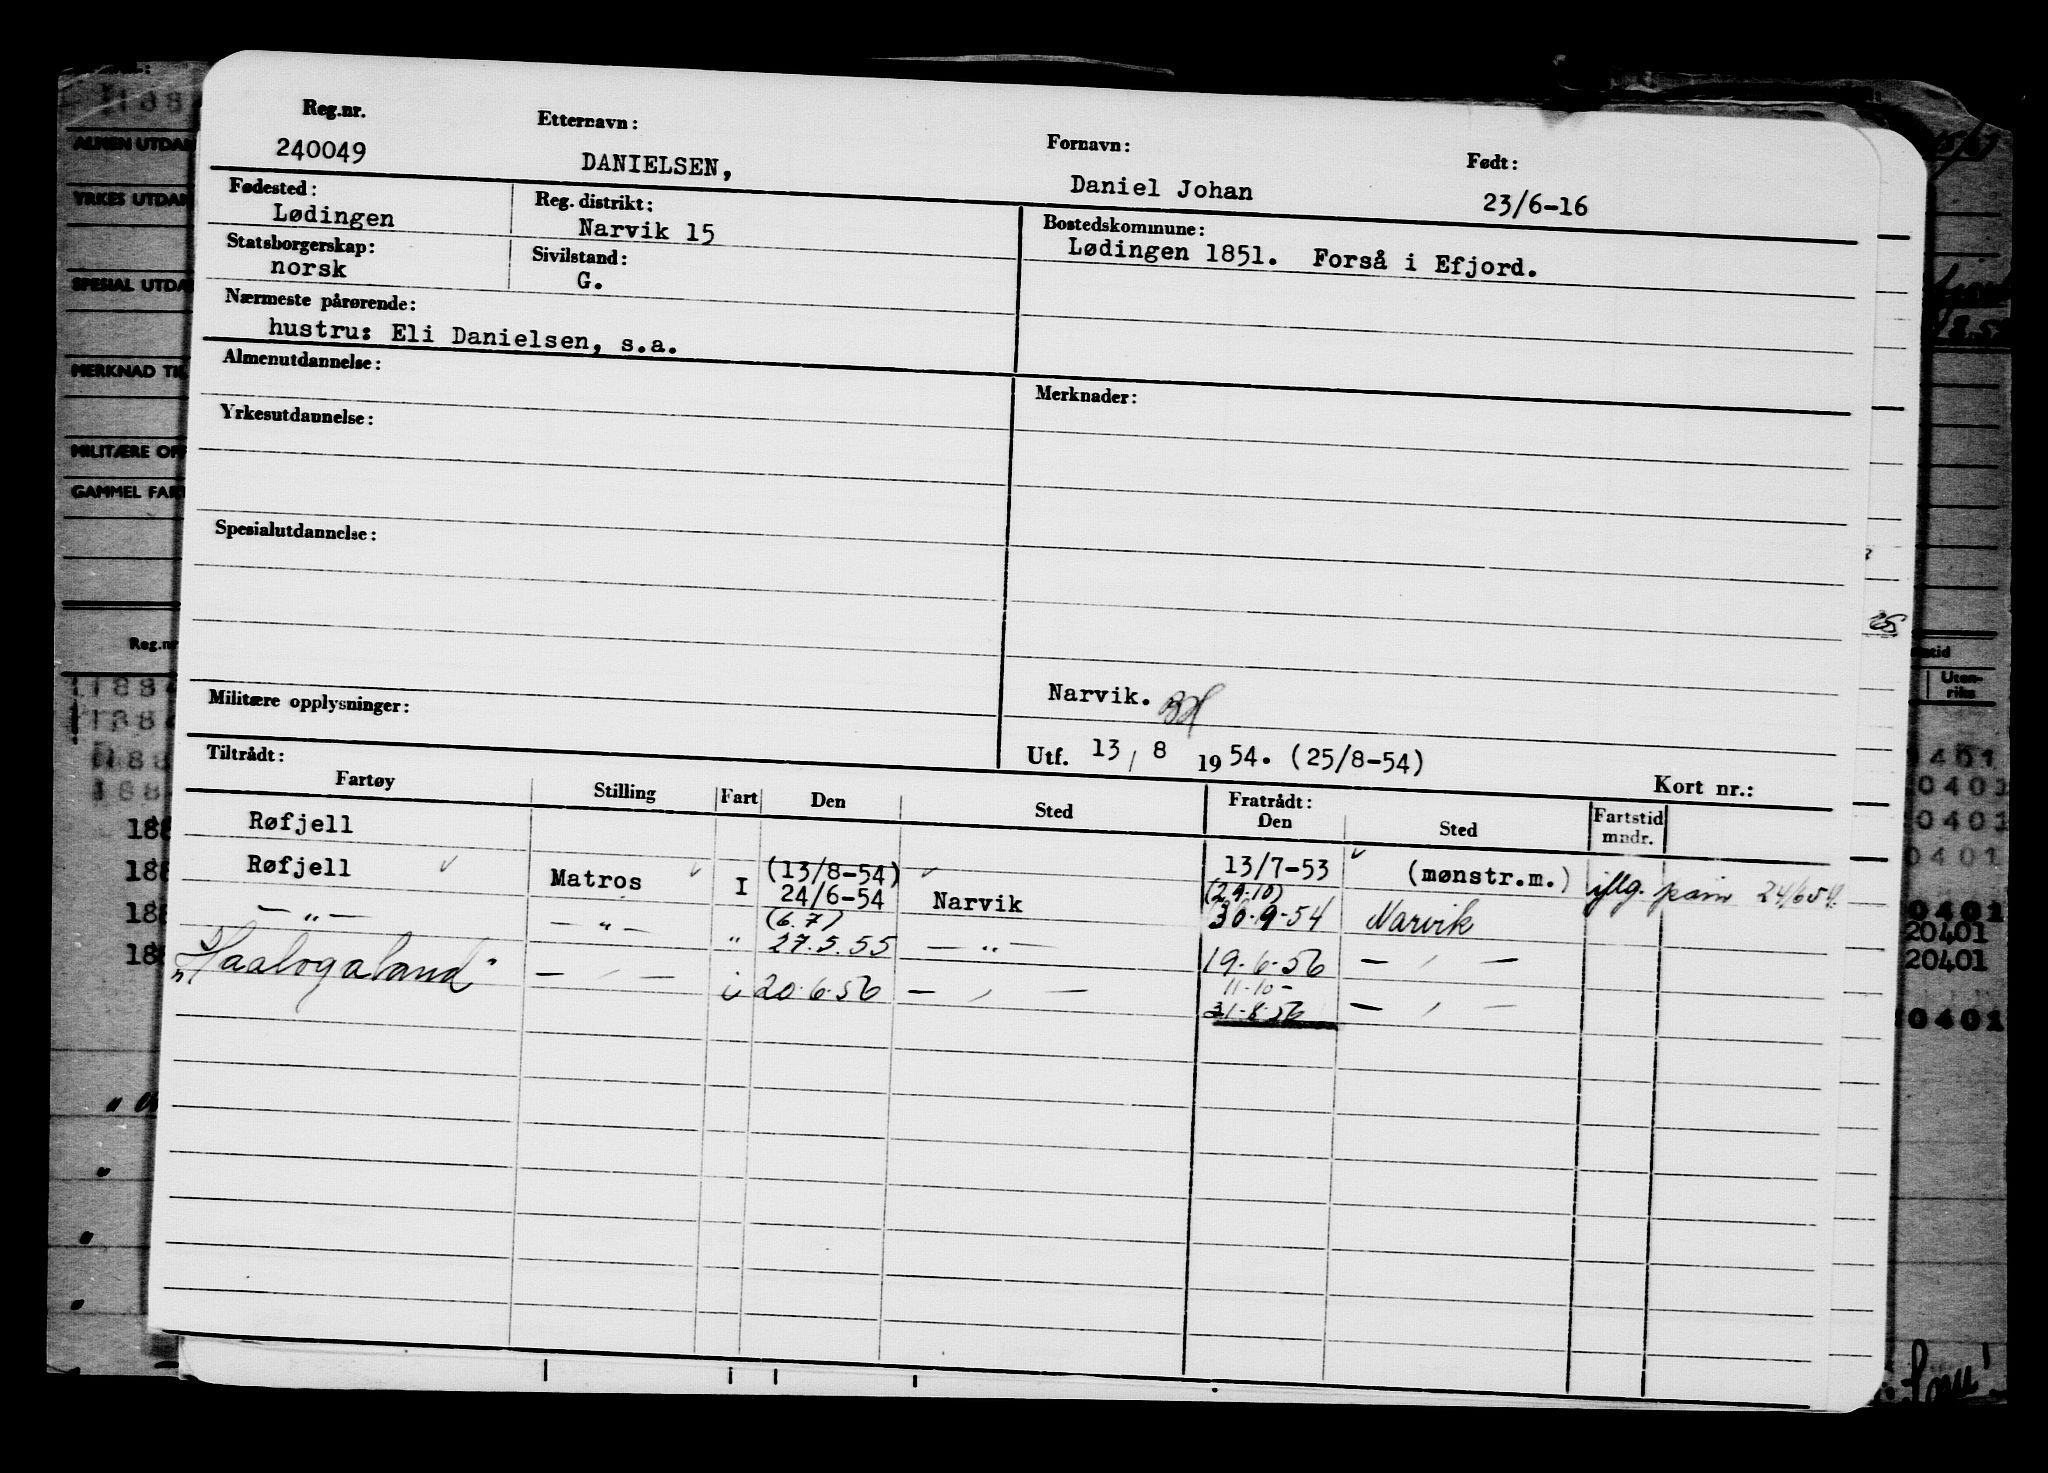 Reg.nr. Etternavn: Fornavn: Født:
240049 DANIELSEN, Daniel Johan 23/6-16
Fødested: Reg. distrikt: Bostedskommune:
Lødingen Narvik 15 Lødingen 1851. Forså i Efjord.
Statsborgerskap: Sivilstand:
norsk G.
Nærmeste pårørende:
hustru: Eli Danielsen, s.a.
Almenutdannelse: Merknader:
Yrkesutdannelse:
Spesialutdannelse:
Militære opplysninger: Narvik.
Utf. 13 / 8 1954. (25/8-54)
Tiltrådt: Kort nr.:
Fartøy Stilling Fart Den Sted Fratrådt: Den Sted Fartstid mndr.
Røfjell 13/7-53 (mønstr.m.) 24/6 54.
Røfjell Matros I (13/8-54) 24/6-54 Narvik (29.10) 30.9-54 Narvik
— " — — " — " (6.7) 27.5.55 — " — 19.6.56 — " —
"Haalogaland" — " — i 20.6.56 — " — 11.10 - 31.8.56 — " —
ALMEN UTDAN
YRKES UTDAN
SPESIAL UTDA
MERKNAD TIL
MILITÆRE OPP
GAMMEL FART
Reg.nr
Uten-
riks
0401
20401
20401
0401